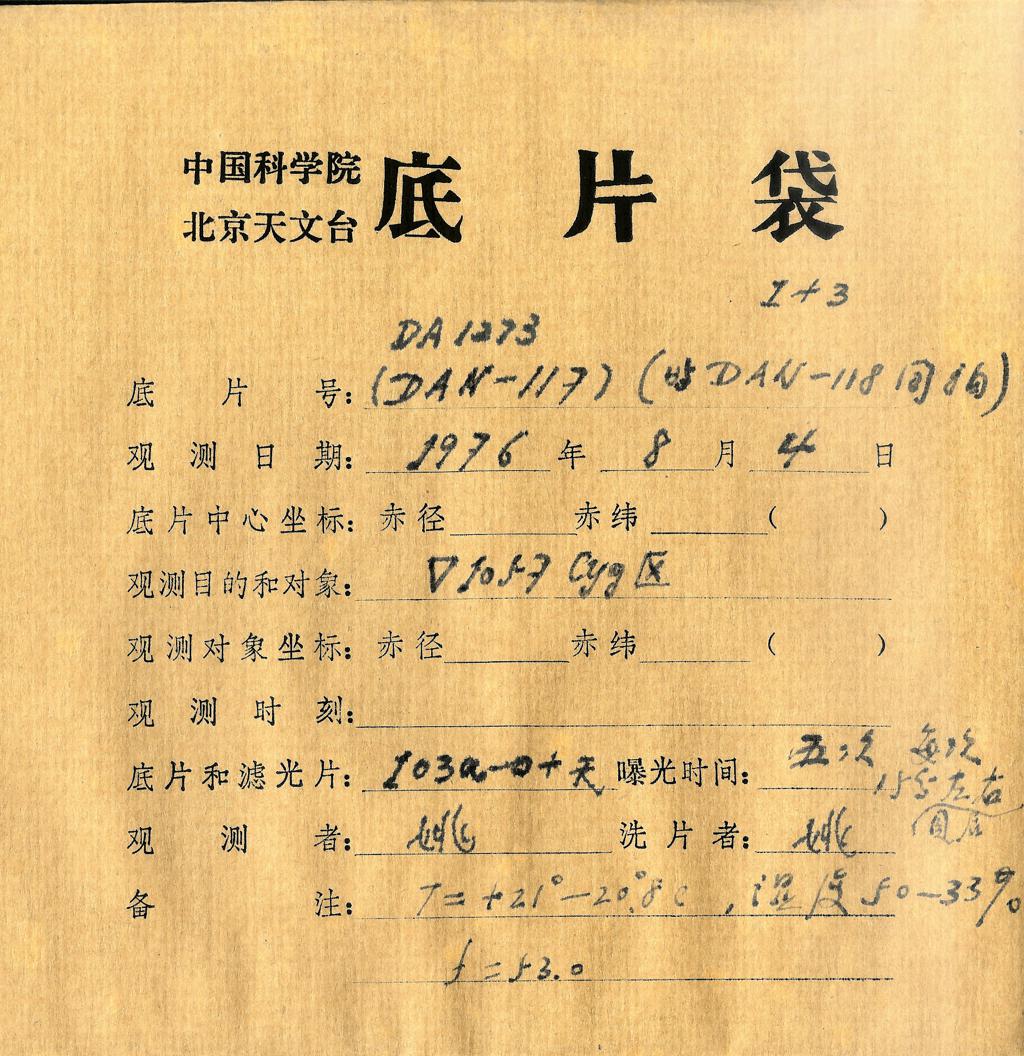 中国科学院
北京天文台 底片袋
I+3
DA1273
底片号: (DAN-117) (DAN-118
观测日期: 1976年8月4日
底片中心坐标: 赤径 赤纬 ( )
观测目的和对象: ∇1057 Cyg区
观测对象坐标: 赤径 赤纬 ( )
观测时刻:
底片和滤光片: 103a-O+无 曝光时间: 五次 每次
15s左右
观测者: 姚 洗片者: 姚
备注: T=+21°-20°.8C, 湿度50-33%
f=53.0